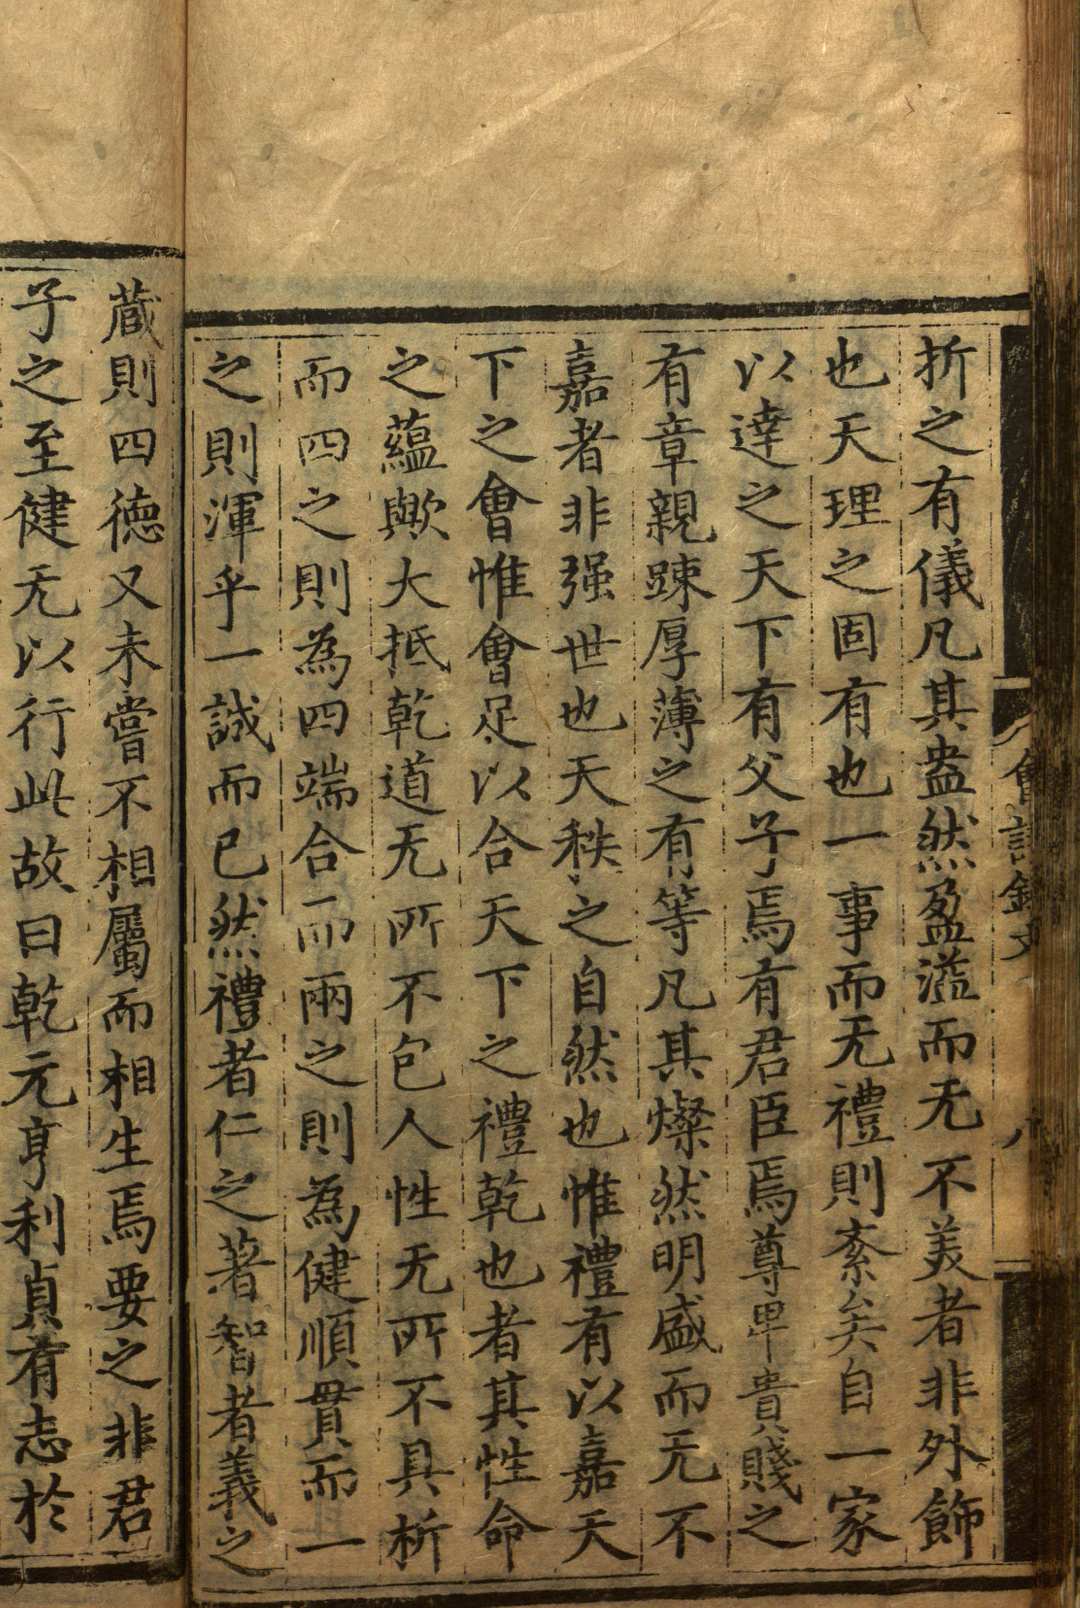 折之有儀凡其盎然盈溢而无不美者非外飾
也天理之固有也一事而无禮則紊矣自一家
以達之天下有父子焉有君臣焉尊卑貴賤之
有章親踈厚薄之有等凡其燦然明盛而无不
嘉者非强世也天秩之自然也惟禮有以嘉天
下之會惟會足以合天下之禮乾也者其性命
之蘊歟大抵乾道无所不包人性无所不具析
而四之則為四端合而兩之則為健順貫而一
之則渾乎一誠而已然禮者仁之著智者義之
藏則四德又未嘗不相屬而相生焉要之非君
子之至健无以行此故曰乾元亨利貞有志於